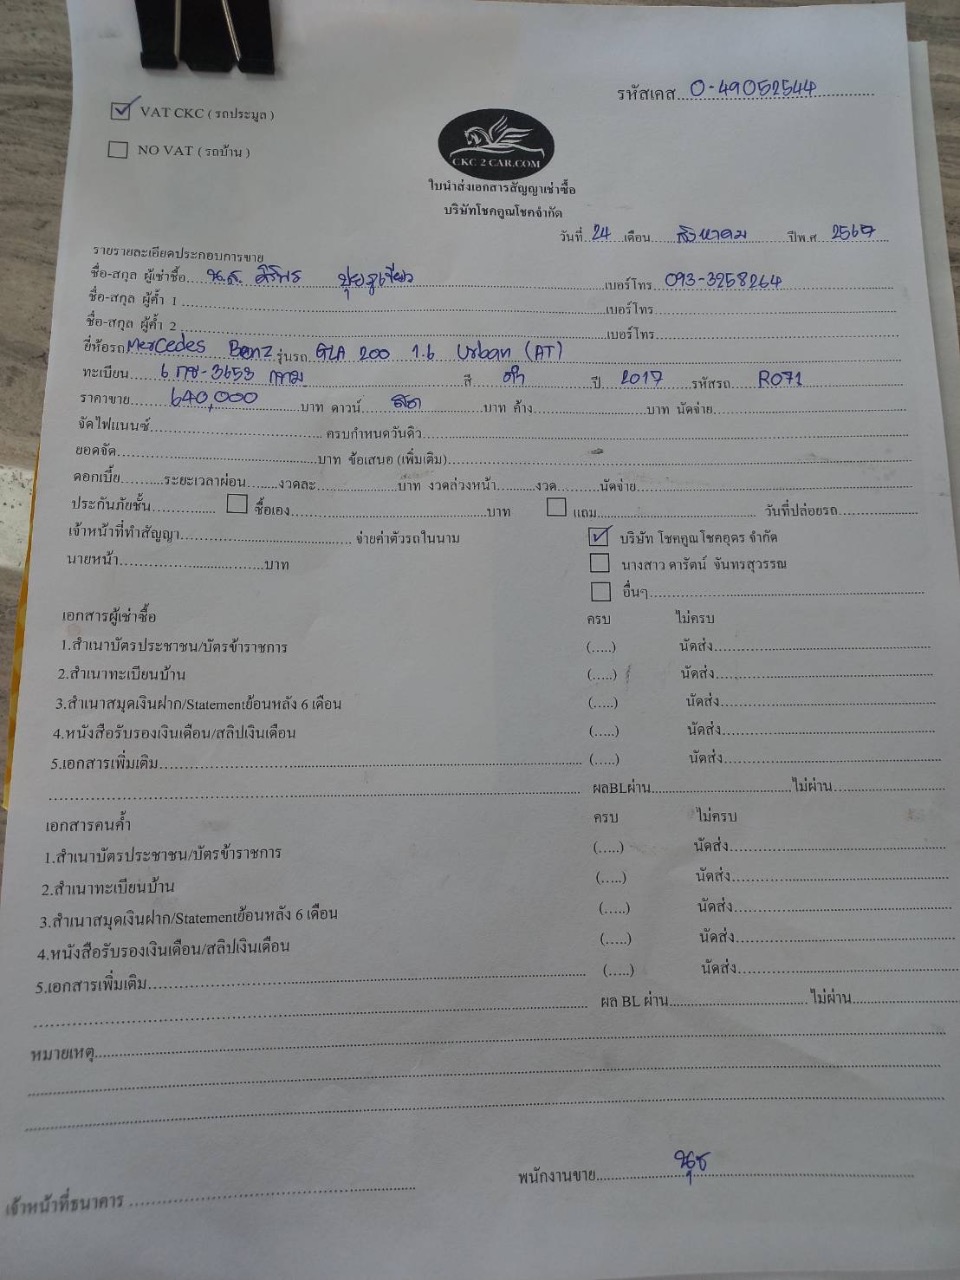 รหัสเคส..0-49052544
VAT CKC ( รถประมูล )
NO VAT ( รถบ้าน )
CKC 2 CAR.COM
ใบนำส่งเอกสารสัญญาเช่าซื้อ
บริษัทโชคคูณโชคจำกัด
วันที่ 24 เดือน สิงหาคม ปีพ.ศ 2567
รายรายละเอียดประกอบการขาย
ชื่อ-สกุล ผู้เช่าซื้อ น.ส. ศิริพร เบอร์โทร 093-3258264
ชื่อ-สกุล ผู้ค้ำ 1 เบอร์โทร
ชื่อ-สกุล ผู้ค้ำ 2 เบอร์โทร
ยี่ห้อรถ Mercedes Benz รุ่นรถ GLA 200 1.6 Urban (AT)
ทะเบียน 6 กช-3653 กทม สี ดำ ปี 2017 รหัสรถ R071
ราคาขาย 640,000 บาท ดาวน์ สด บาท ค้าง บาท นัดจ่าย
จัดไฟแนนซ์ ครบกำหนดวันดิว
ยอดจัด บาท ข้อเสนอ (เพิ่มเติม)
ดอกเบี้ย ระยะเวลาผ่อน งวดละ บาท งวดล่วงหน้า งวด นัดจ่าย
ประกันภัยชั้น ซื้อเอง บาท แถม วันที่ปล่อยรถ
เจ้าหน้าที่ทำสัญญา จ่ายค่าตัวรถในนาม บริษัท โชคคูณโชคอุดร จำกัด
นายหน้า บาท นางสาว ดารัตน์ จันทรสุวรรณ
อื่นๆ
เอกสารผู้เช่าซื้อ ครบ ไม่ครบ
1.สำเนาบัตรประชาชน/บัตรข้าราชการ (.....) นัดส่ง
2.สำเนาทะเบียนบ้าน (.....) นัดส่ง
3.สำเนาสมุดเงินฝาก/Statementย้อนหลัง 6 เดือน (.....) นัดส่ง
4.หนังสือรับรองเงินเดือน/สลิปเงินเดือน (.....) นัดส่ง
5.เอกสารเพิ่มเติม (.....) นัดส่ง
ผลBLผ่าน ไม่ผ่าน
เอกสารคนค้ำ ครบ ไม่ครบ
1.สำเนาบัตรประชาชน/บัตรข้าราชการ (.....) นัดส่ง
2.สำเนาทะเบียนบ้าน (.....) นัดส่ง
3.สำเนาสมุดเงินฝาก/Statementย้อนหลัง 6 เดือน (.....) นัดส่ง
4.หนังสือรับรองเงินเดือน/สลิปเงินเดือน (.....) นัดส่ง
5.เอกสารเพิ่มเติม (.....) นัดส่ง
ผล BL ผ่าน ไม่ผ่าน
หมายเหตุ
พนักงานขาย นุช
เจ้าหน้าที่ธนาคาร